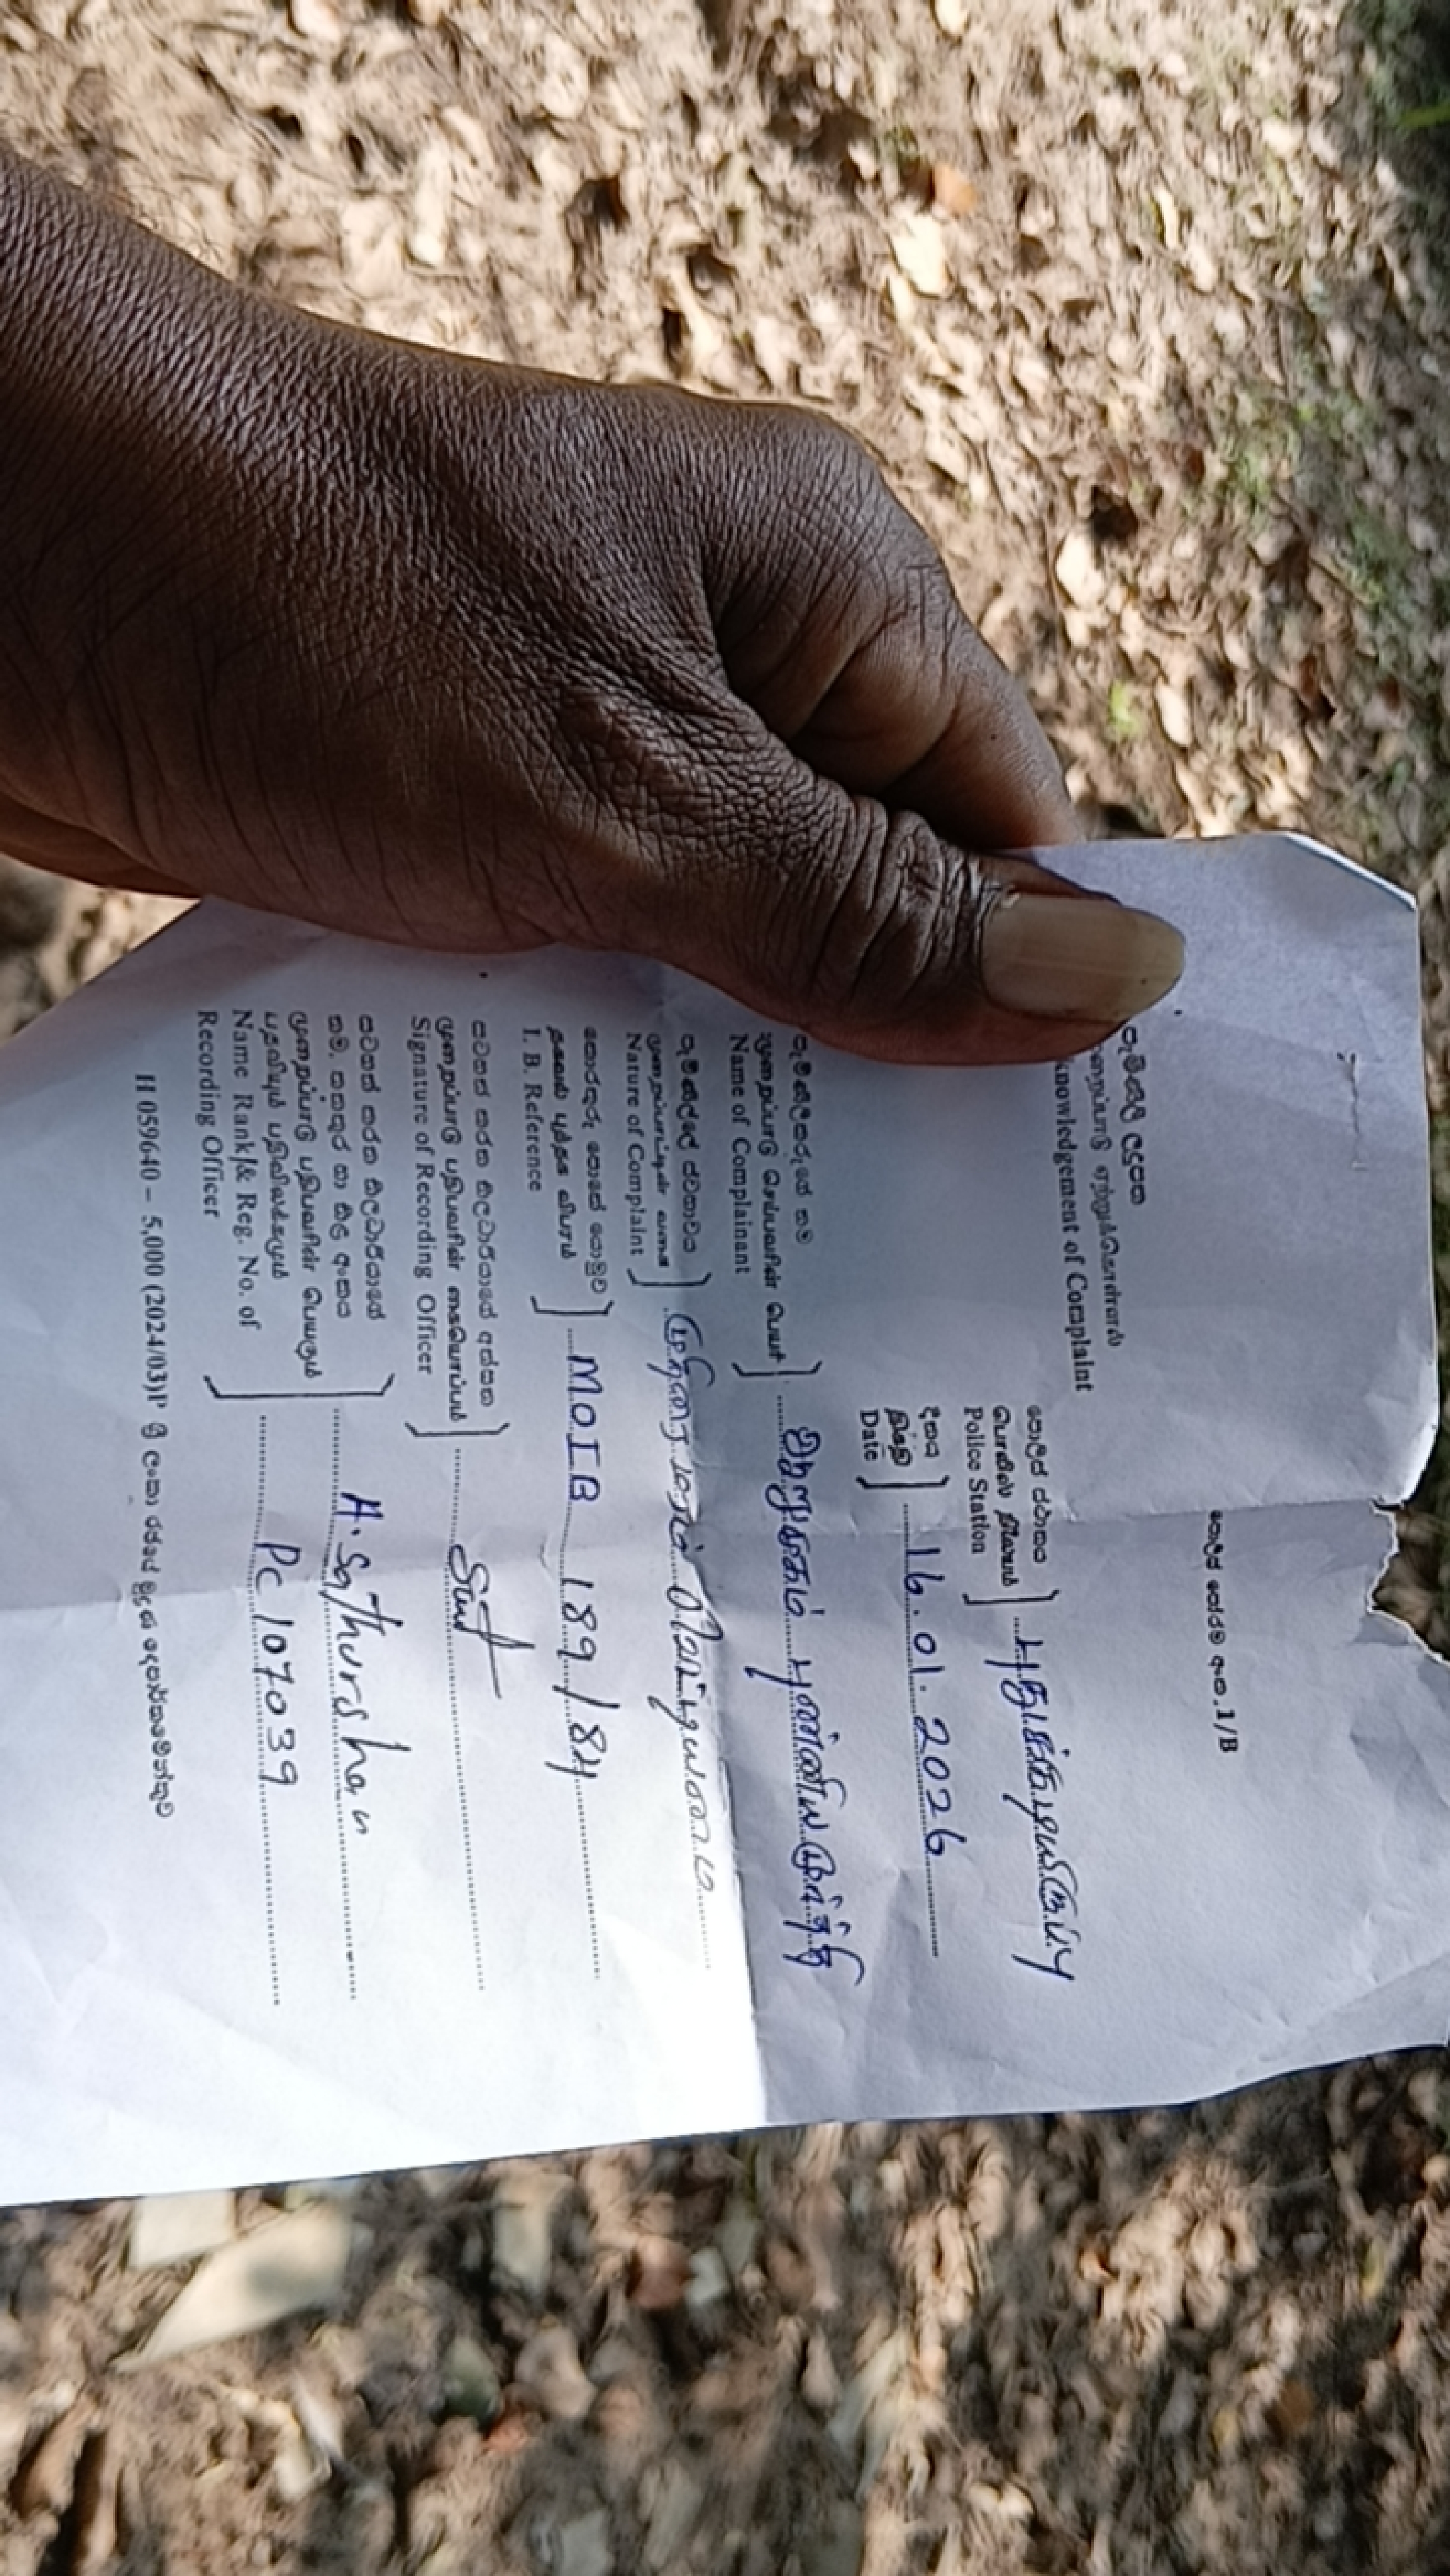 පොලිස් පෝරම අංක.1/B
පැමිණිලි ලදුපත
முறைப்பாடு ஏற்றுக்கொள்ளல்
knowledgement of Complaint
පොලිස් ස්ථානය
பொலிஸ் நிலையம்
Police Station
புதுக்குடியிருப்பு
දිනය
திகதி
Date
16.01.2026
පැමිණිලිකරුගේ නම
முறைப்பாடு செய்பவரின் பெயர்
Name of Complainant
ஆறுமுகம் புண்ணியமூர்த்தி
පැමිණිල්ලේ ස්වභාවය
முறைப்பாட்டின் வகை
Nature of Complaint
முதிரை மரம் வெட்டியமை
තොරතුරු පොතේ යොමුව
தகவல் புத்தக விபரம்
I. B. Reference
MOIB 189/84
සටහන් කරන නිලධාරියාගේ අත්සන
முறைப்பாடு பதிபவரின் கையொப்பம்
Signature of Recording Officer
සටහන් කරන නිලධාරියාගේ
නම, තනතුර හා නිල අංකය
முறைப்பாடு பதிபவரின் பெயரும்
பதவியும் பதிவிலக்கமும்
Name Rank/& Reg. No. of
Recording Officer
A. Sathurshan
PC 107039
H 059640 – 5,000 (2024/03)P ශ්‍රී ලංකා රජයේ මුද්‍රණ දෙපාර්තමේන්තුව